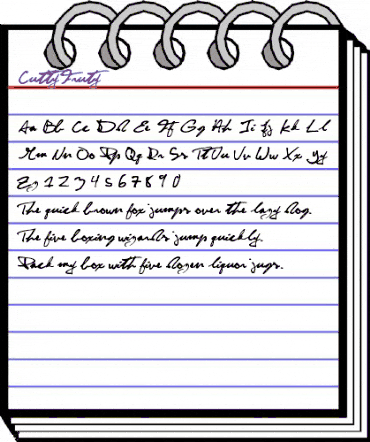 CuttyFruty
Aa Bb Cc Dd Ee Ff Gg Hh Ii Jj Kk Ll
Mm Nn Oo Pp Qq Rr Ss Tt Uu Vv Ww Xx Yy
Zz 1 2 3 4 5 6 7 8 9 0
The quick brown fox jumps over the lazy dog.
The five boxing wizards jump quickly.
Pack my box with five dozen liquor jugs.